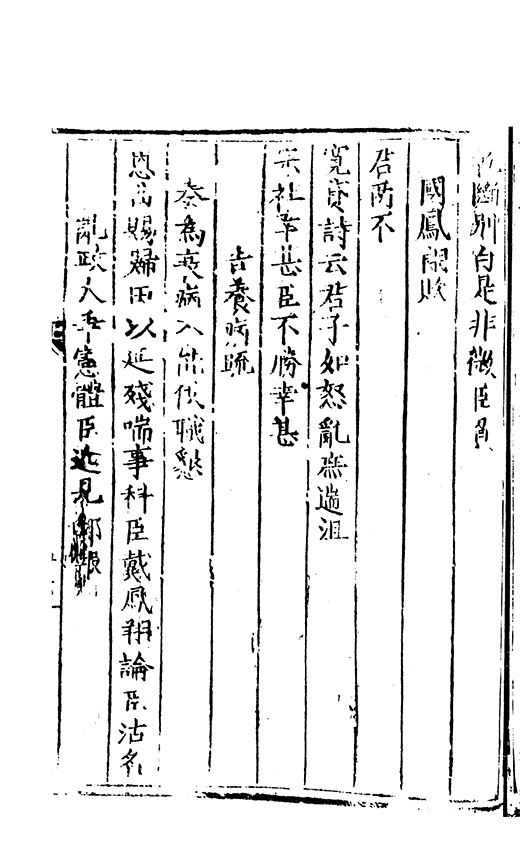 斷別自是非微臣負
國鳳關敗
君两不
寬赛詩云君子如怒亂庶遄沮
宗社幸甚臣不勝幸甚
告養病疏
奏為衰病不能供職懇
恩而賜歸田以延殘喘事科臣戴鳳翔論臣沽名
亂政大乖憲體臣近見邸報